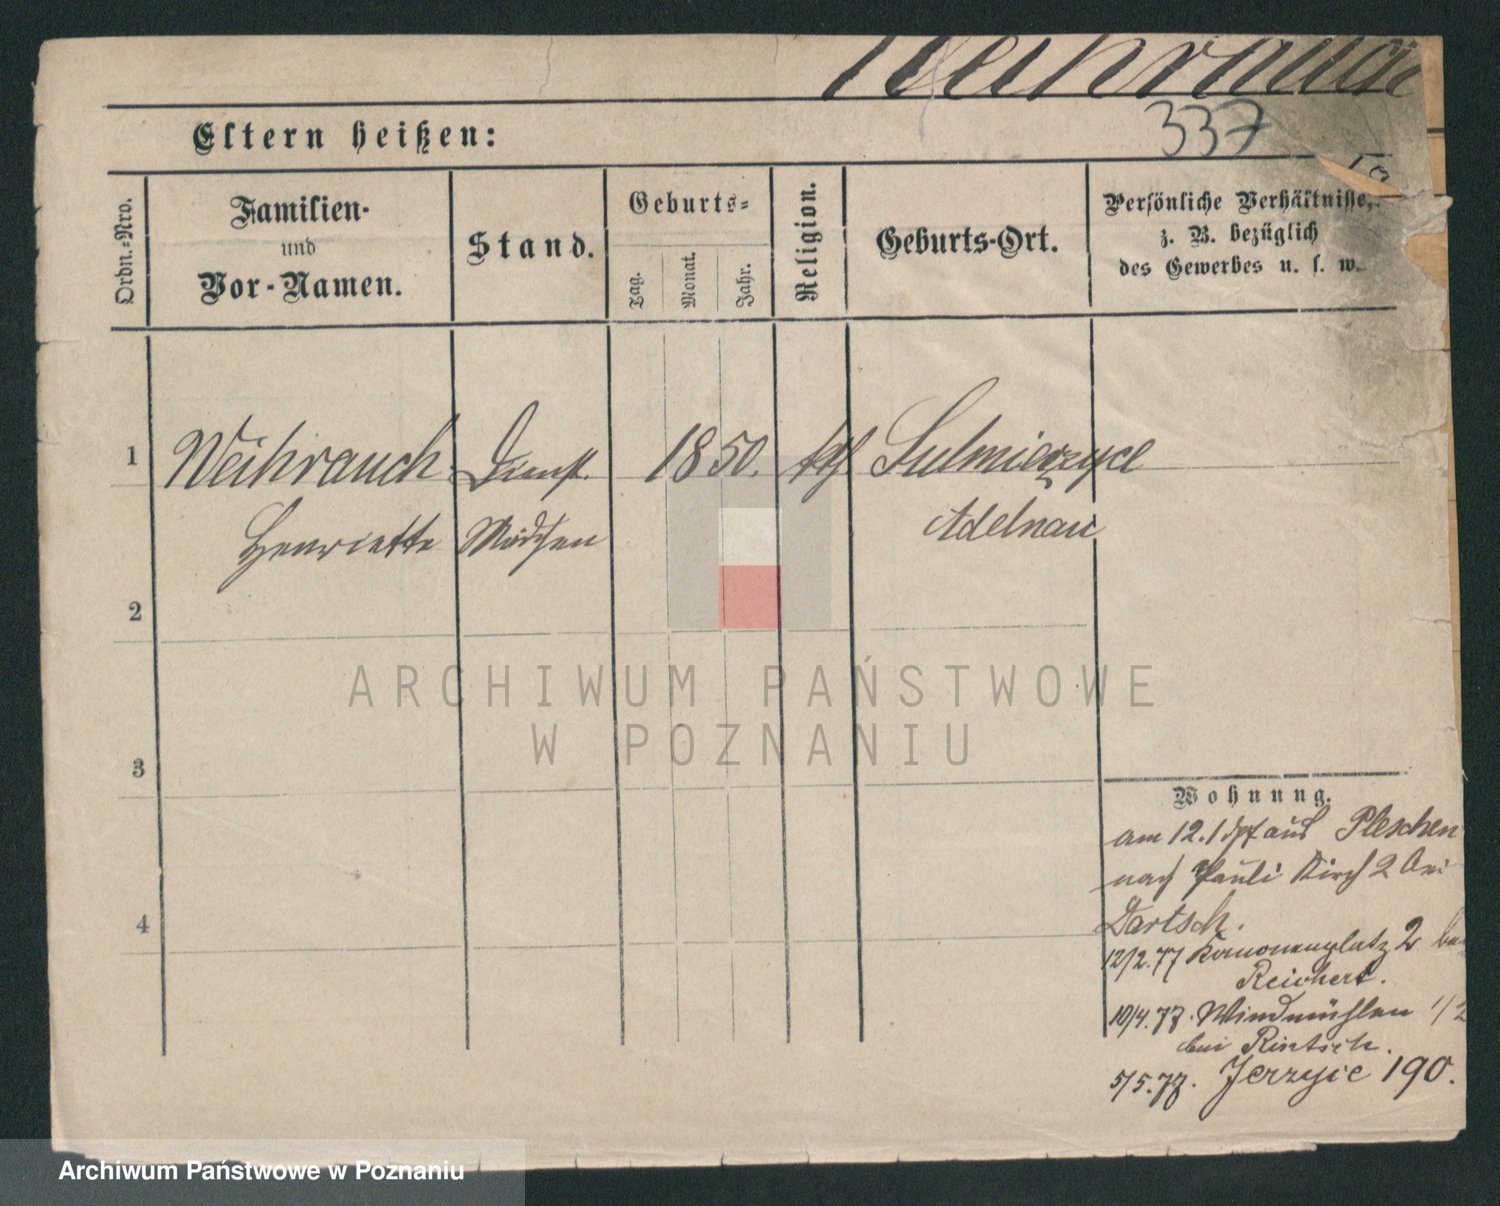 Weihrauch
337
Eltern heißen:
Ordn.-Nro.
Familien-
und
Vor-Namen.
Stand.
Geburts-
Tag.
Monat.
Jahr.
Religion.
Geburts-Ort.
Persönliche Verhältnisse,
z. B. bezüglich
des Gewerbes u. s. w.
1 Weihrauch Dienst 1850. kth Sulmierzyce
Henriette Mädchen Adelnau
2
3
4
Wohnung.
am 12.1 aus Pleschen
nach Pauli Kirch 2 bei
Bartsch.
12/2.77 Kanonenplatz 2 bei
Reichert.
10/4.77. Windmühlen 1/2
bei Rintsch.
5/5.77. Jerzyce 190.
ARCHIWUM PAŃSTWOWE
W POZNANIU
Archiwum Państwowe w Poznaniu